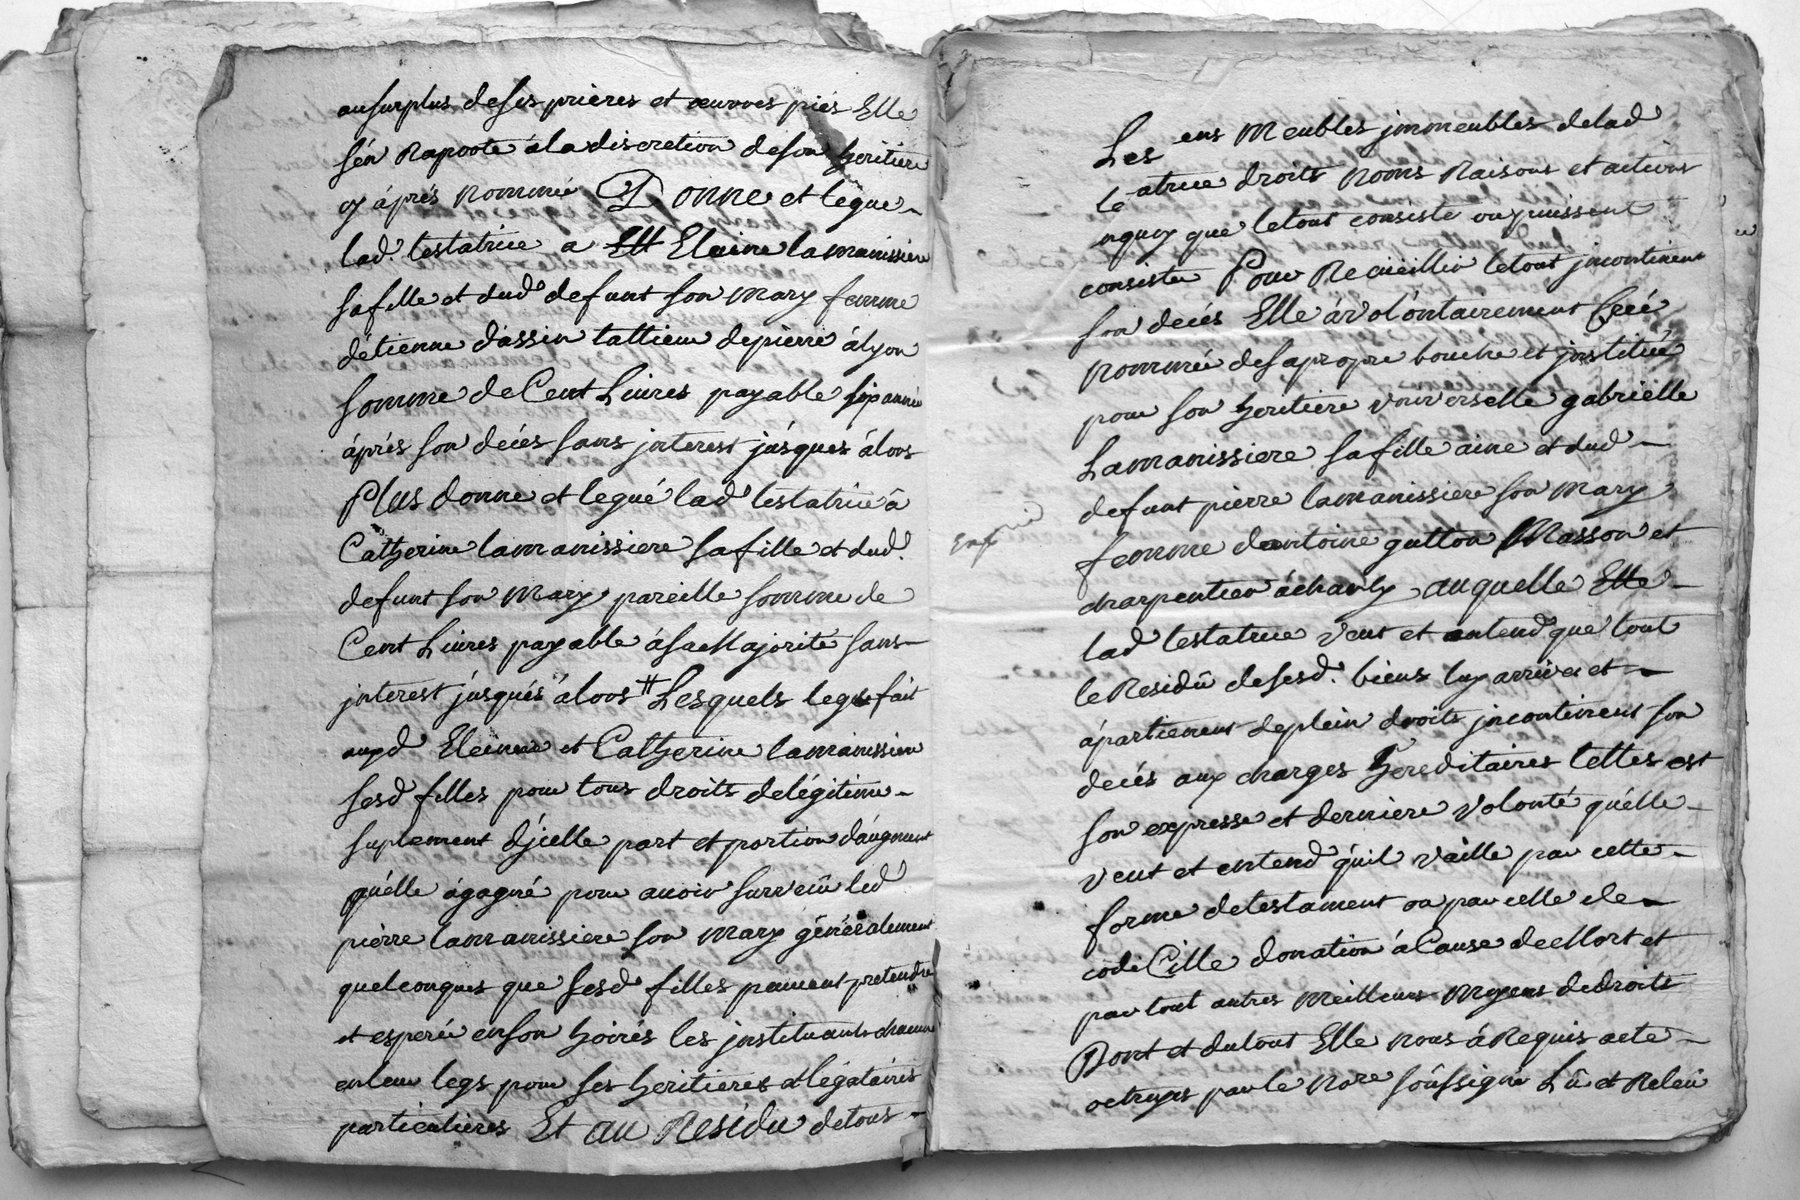 ausurplus deses prières et œuvres piés Elle
s'én Raporte àla discretion deson heritiere
cy áprés nommée Donne et legue
lad. testatrice a Eleine lamanissiere
safille et dud. defunt son Mary femme
détienne dassin tallieur depierre àlyon
somme de Cent Livres payable six année
áprés son decés sans jnterest jusques àlors
Plus donne et legué lad. testatrice à
Catherine lamanissiere safille et dud.
defunt son Mary pareille somme de
Cent Livres payable àsa Majorité sans
jnterest jusqués àlors Lesquels legs fait
auxd Eleinne et Catherine lamanissiere
sesd filles pour tous droits delégitime
suplement d'jcelle part et portion d'augment
qu'élle ágagné pour avoir survecû led.
pierre lamanissiere son Mary génèralement
quelconques que sesd filles peuvent pretendre
et esperée enson hoirés les jnstituants chacune
enleur legs pour ses heritieres et légataires
particulieres Et au Residu detous
Les ens Meubles jmmeubles delad
te atrice droits Noms Raisons et actions
nquoy que letout consiste ou puissent
consister Pour Recüeillir letout jncontinent
son decés Elle ávolóntairement Créé
nommée desapropre bouche et jnstituée
pour son heritiere vniverselle gabriélle
Lamanissiere safille aine et dud
defunt pierre lamanissiere son Mary
femme dantoine gutton Masson et
charpentier àcharly auquelle Elle
lad testatrice veut et entend que tout
le Residû desesd. biens luy arrive et
ápartienent deplein droits jncontinent son
decés aux charges hereditaires telles est
son expresse et derniere volonté qu'élle
veut et entend qúil vaille par cette
forme detestament ou par celle de
codiCille donation àCause deMort et
par tout autres Meilleurs Moyens dedroits
Dont et dutout Elle nous àRequis acte
octroyés par le Nore soûssigné Lû et Releû